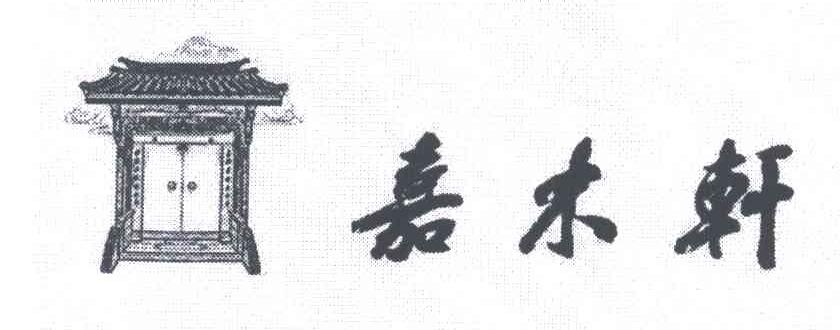 嘉木軒